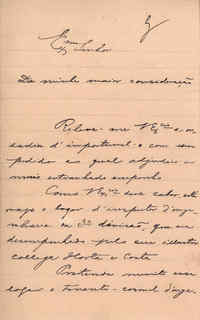 Exmo
Senhor
Da minha maior consideração
Releve-me V. Exa a
ousadia d'importunal-o com um
pedido e no qual
mais extranhado empenho.
Como V. Exa deve saber, está
vago o logar d'inspector d'enge-
nharia na 3a divisão, que era
desempenhado pelo seu illustre
collega Horta e Costa
Pretende muito esse
logar o tenente-coronel d'enge-